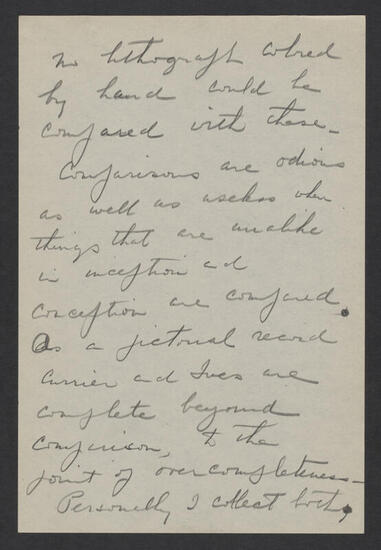 no lithograph colored
by hand could be
compared with these –
Comparisons are odious
as well as useless when
things that are unalike
in inception and
conception are compared.
As a pictorial record
Currier and Ives are
complete beyond
comparison, to the
point of overcompleteness –
Personally I collect both,